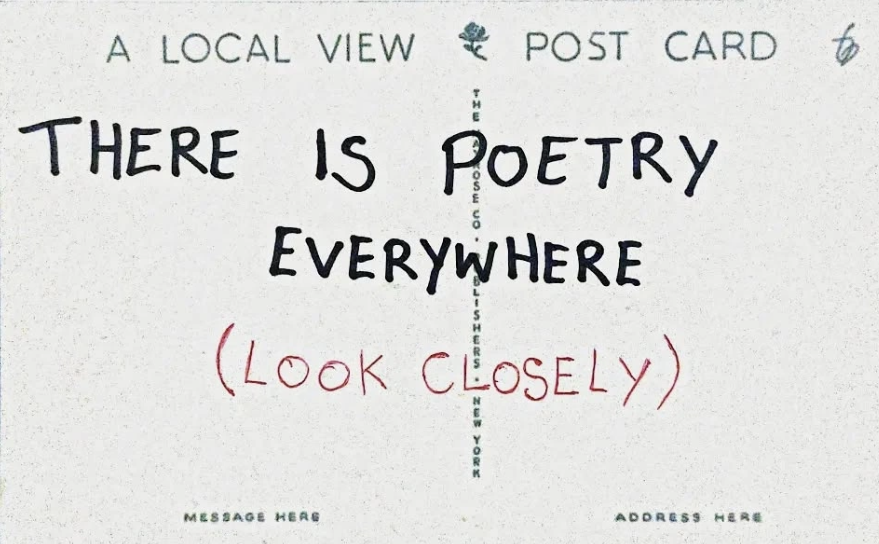 A LOCAL VIEW POST CARD
THERE IS POETRY
EVERYWHERE
(LOOK CLOSELY)
THE ROSE CO. PUBLISHERS. NEW YORK
MESSAGE HERE
ADDRESS HERE